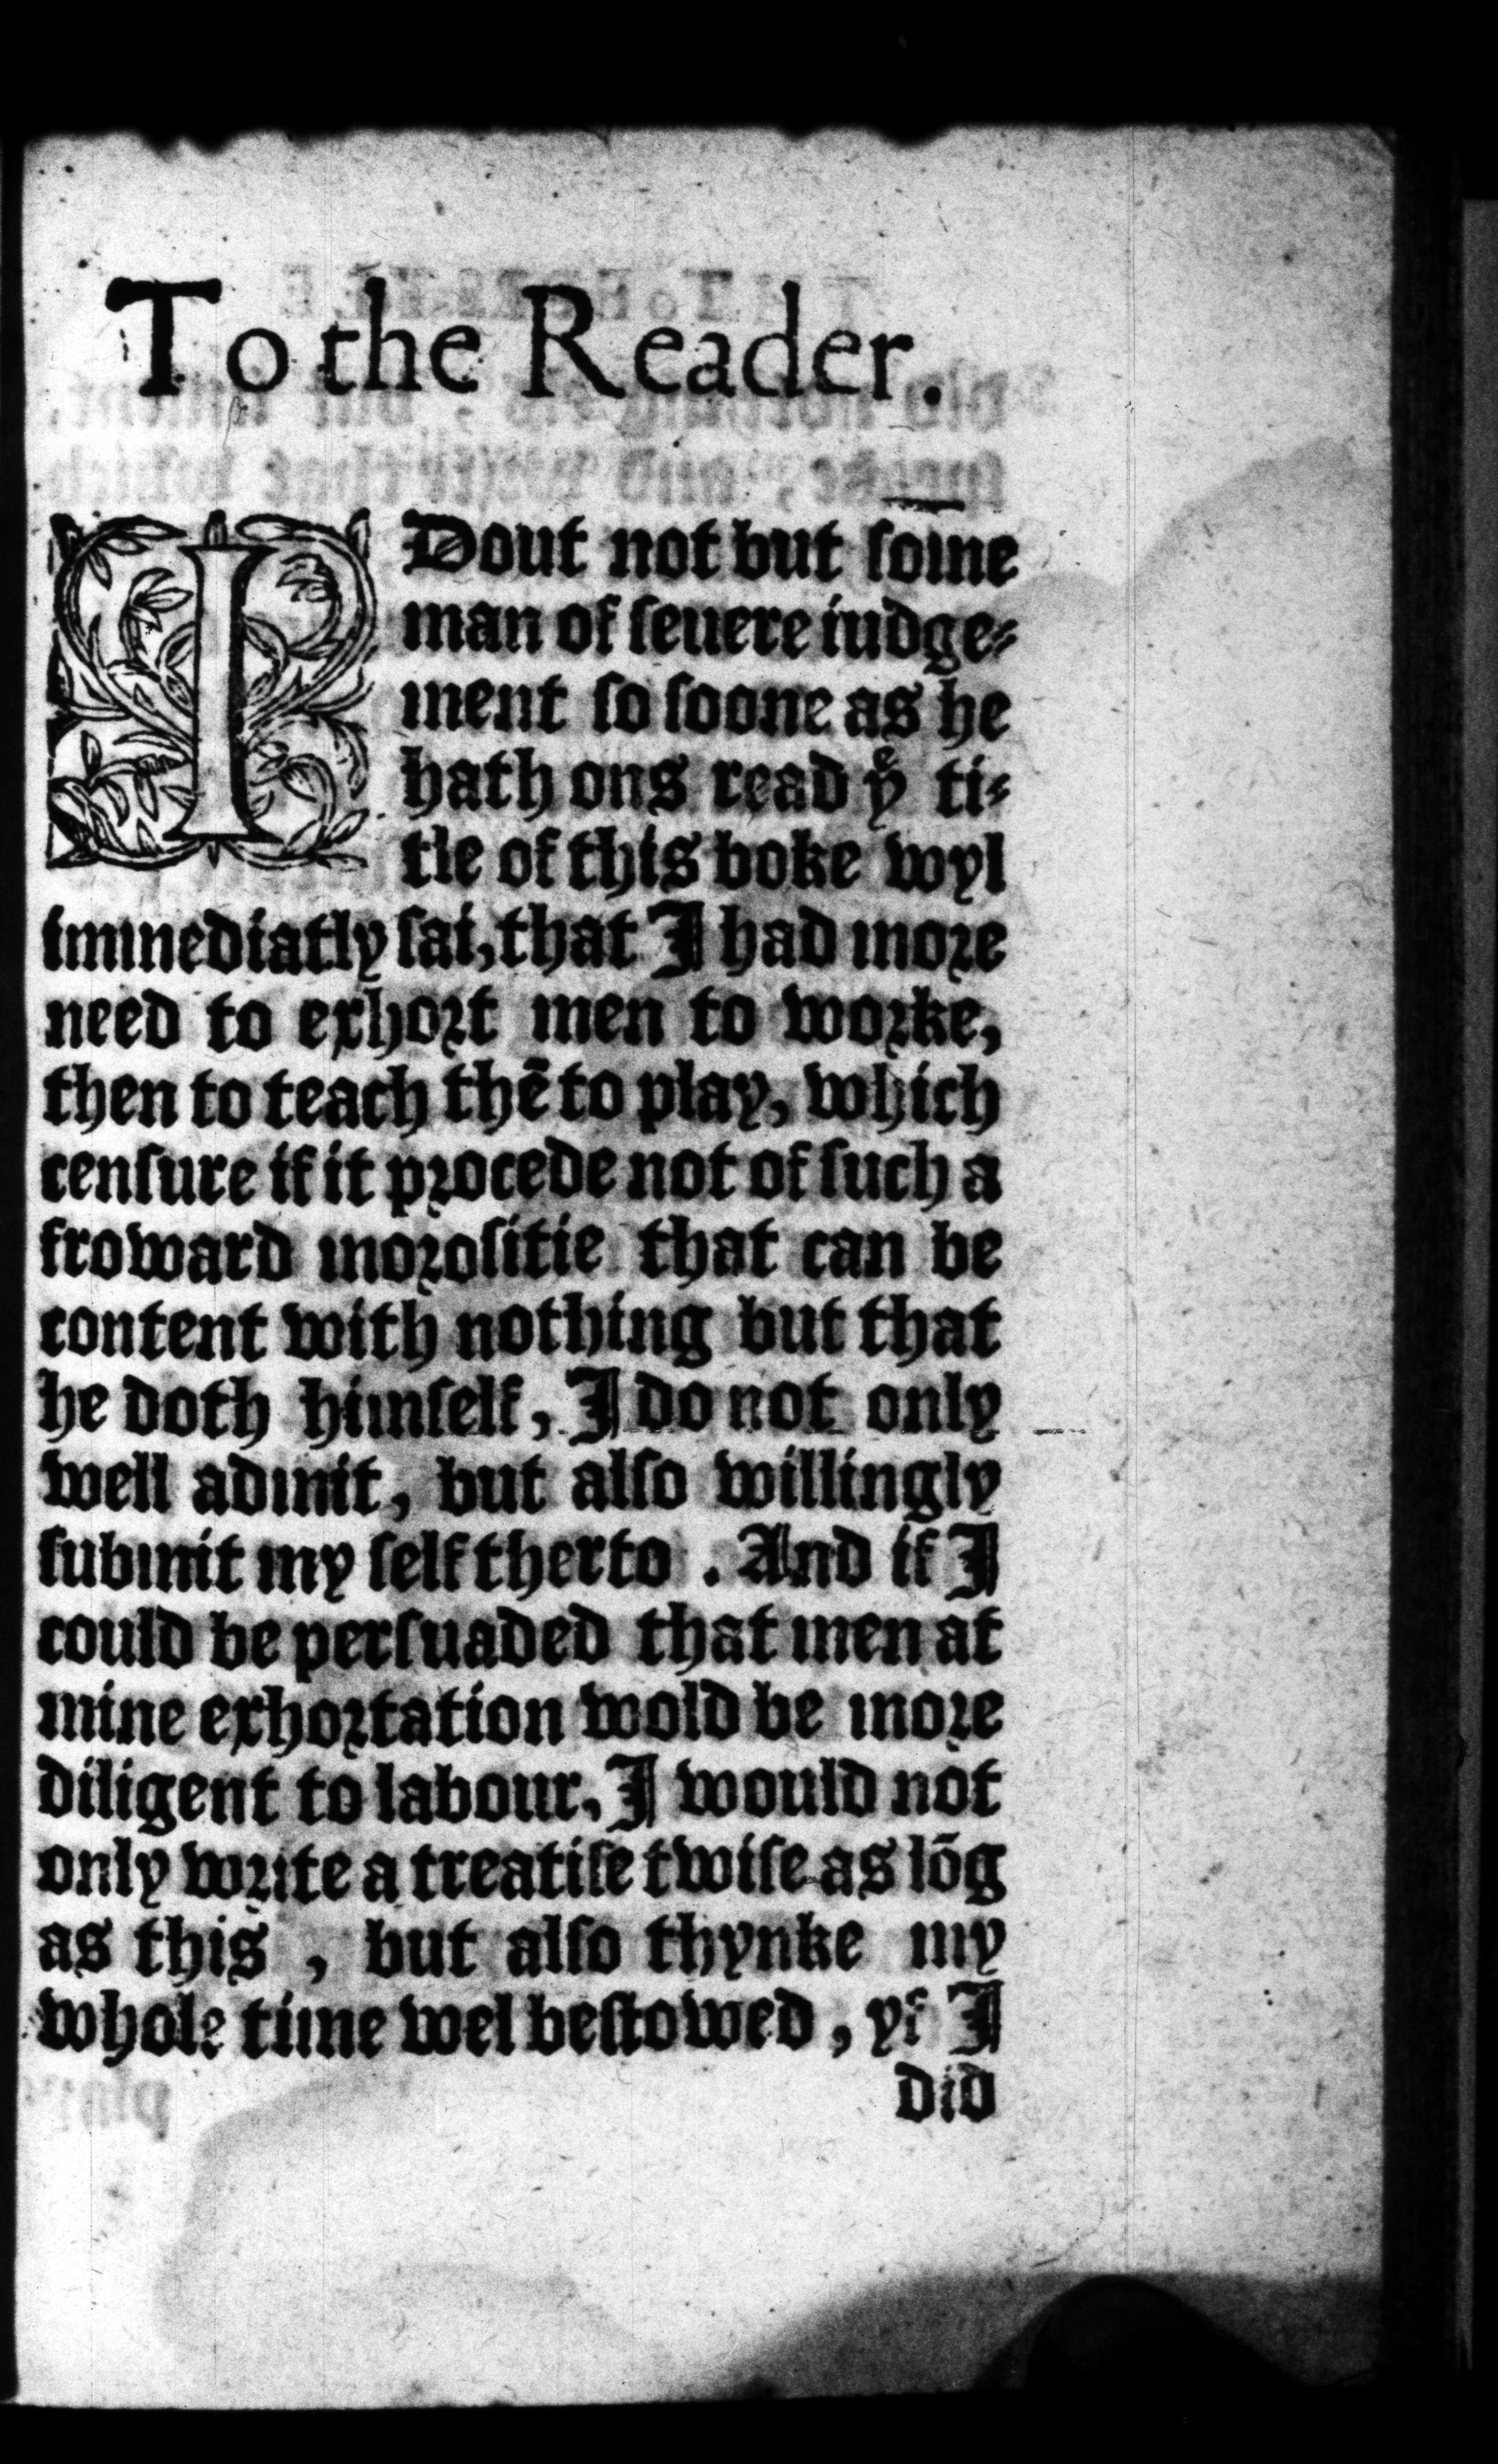 To the Reader.
I Dout not but some
man of seuere iudge-
ment so soone as he
hath ons read yͤ ti-
tle of this boke wyl
immediatly sai, that I had more
need to exhort men to worke,
then to teach thē to play, which
censure if it procede not of such a
froward morositie that can be
content with nothing but that
he doth himself, I do not only
well admit, but also willingly
submit my self therto . And if I
could be persuaded that men at
mine exhortation wold be more
diligent to labour, I would not
only write a treatise twise as lōg
as this , but also thynke my
whole time wel bestowed, yf I
did